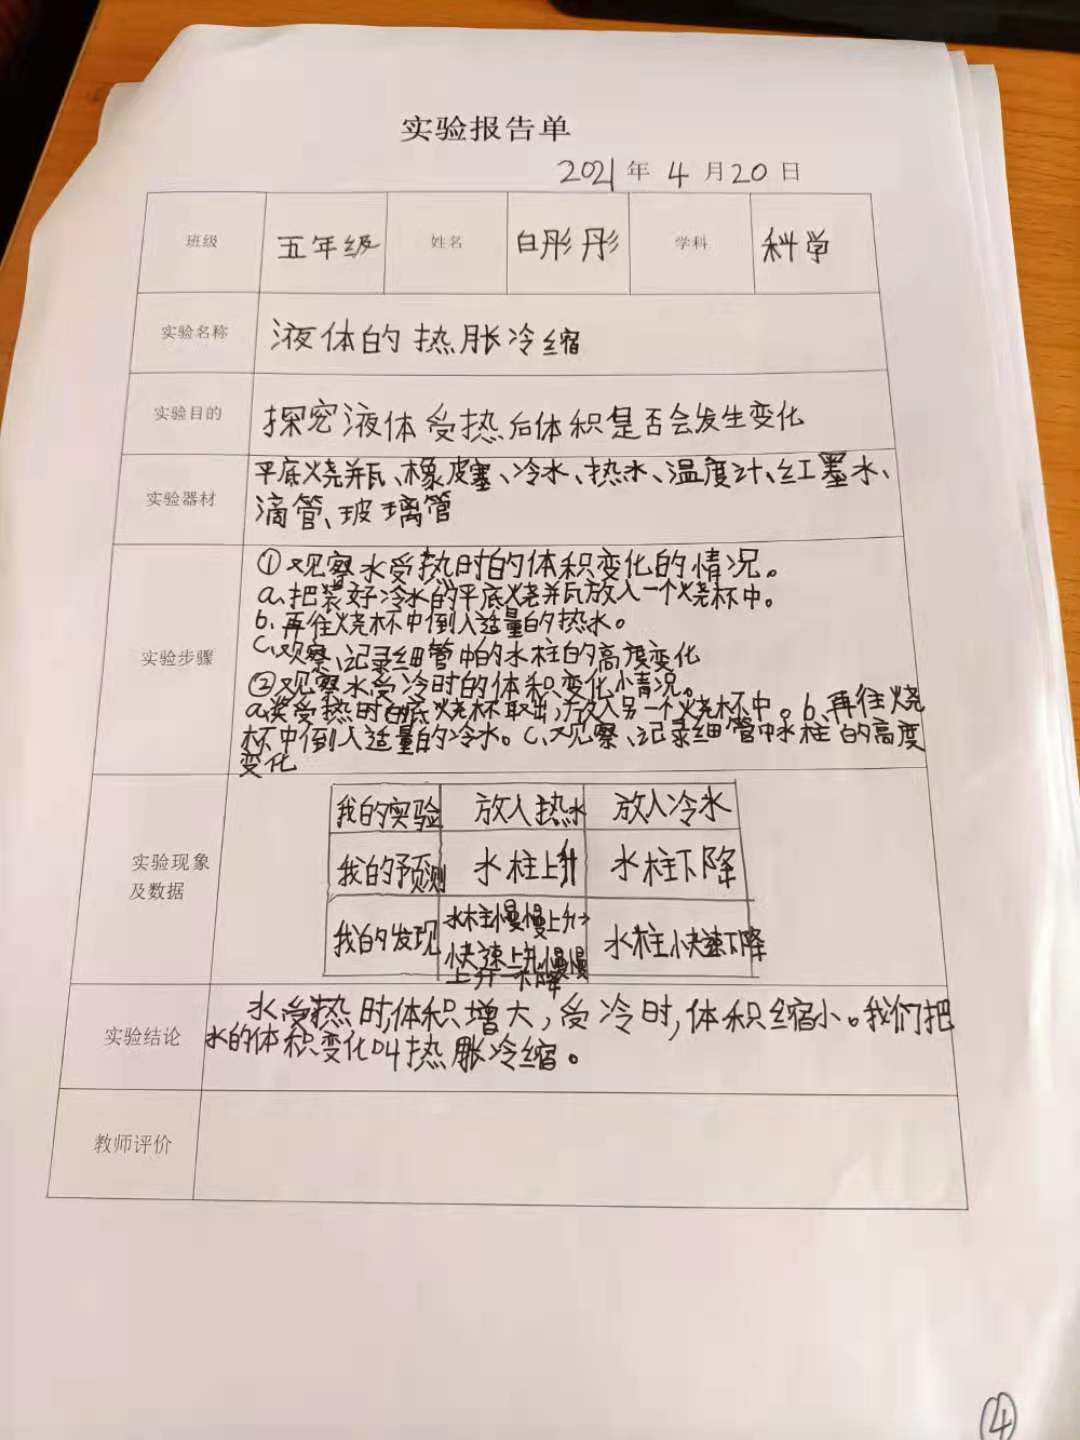 实验报告单
2021年4月20日
班级 五年级 姓名 白彤彤 学科 科学
实验名称 液体的热胀冷缩
实验目的 探究液体受热后体积是否会发生变化
实验器材 平底烧并瓦、橡皮塞、冷水、热水、温度计、红墨水、
滴管、玻璃管
实验步骤
①观察水受热时的体积变化的情况。
a、把装好冷水的平底烧并瓦放入一个烧杯中。
b、再往烧杯中倒入适量的热水。
C、观察、记录细管中的水柱的高度变化
②观察水受冷时的体积变化情况。
a、受热时的底烧杯取出,放入另一个烧杯中。b、再往烧
杯中倒入适量的冷水。C、观察、记录细管中水柱的高度
变化
实验现象
及数据
我的实验 放入热水 放入冷水
我的预测 水柱上升 水柱下降
我的发现 水柱慢慢上升→
快速上升慢慢
上升一下降
水柱快速下降
实验结论 水受热时,体积增大,受冷时,体积缩小。我们把
水的体积变化叫热胀冷缩。
教师评价
④